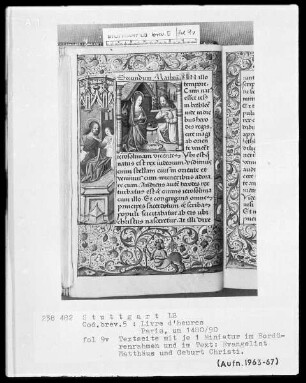 Secundum
illo
tempore. Cum nat⁹
esset iesus in
bethleē
iude in die
bus hero
dis regis
ecce magi
ab orien
te vene
ierosolimam dicentes. Vbi est
natus est rex iudeorum. Vidimus
enim stellam eius in oriente et
venimus cum muneribus adora
re eum. Audiens aūt herodes rex
turbatus est et omnis ierosolima
cum illo. Et congregans omnes
principes sacerdotum et scribas
populi sciscitabatur ab eis ubi
christus nasceretur.
258 482 Stuttgart LB
Cod.brev.5 : Livre d'heures
Paris, um 1480/90
fol 9v Textseite mit je 1 Miniatur im Bordü-
renrahmen und im Text: Evangelist
Matthäus und Geburt Christi.
(Aufn.1963-67)